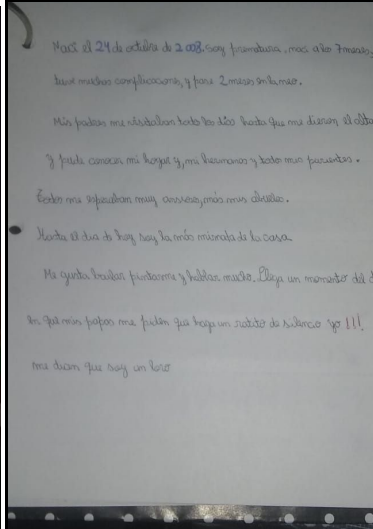 Nací el 24 de octubre de 2008. Soy prematura, nací a los 7 meses,
tuve muchas complicaciones, y pase 2 meses en la neo.
Mis padres me visitaban todo los días hasta que me dieron el alta
y pude conocer mi hogar y, mi hermanos y todo mis parientes.
Todos me esperaban muy ansiosos, más mis abuelos.
Hasta el dia d hoy soy la más mimada de la casa.
Me gusta bailar pintarme y hablar mucho. Llega un momento del
en que mis papas me piden que haga un ratito de silencio yo !!!.
me dicen que soy un loro